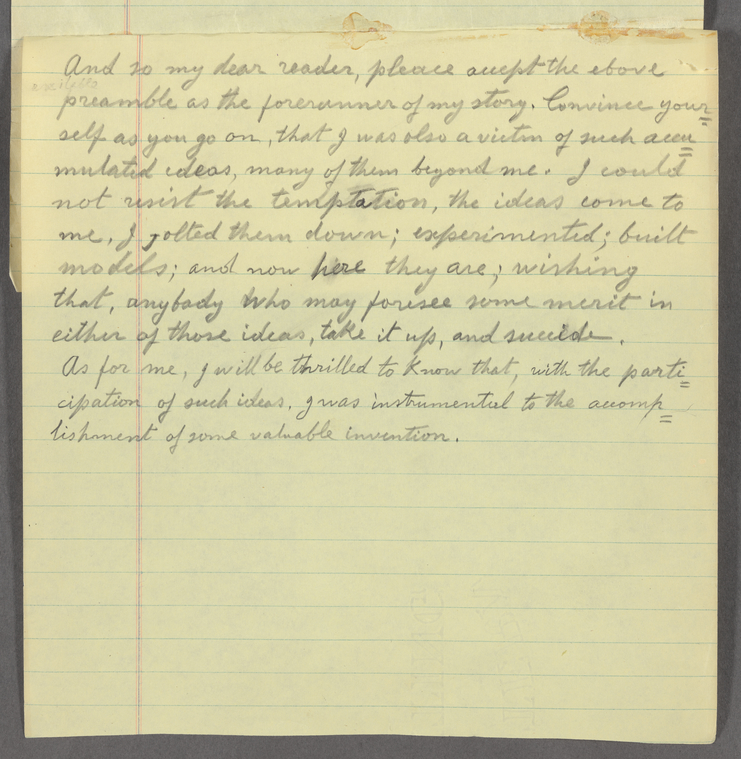 And so my dear reader, pleace accept the above
preamble as the forerunner of my story. Convince your=
self as you go on, that I was also a victim of such accu=
mulated ideas, many of them beyond me. I could
not resist the temptation, the ideas come to
me, I jolted them down; experimented; built
models; and now here they are; wishing
that, anybody who may foresee some merit in
either of those ideas, take it up, and succide.
As for me, I will be thrilled to know that, with the parti=
cipation of such ideas, I was instrumental to the acomp=
lishment of some valuable invention.